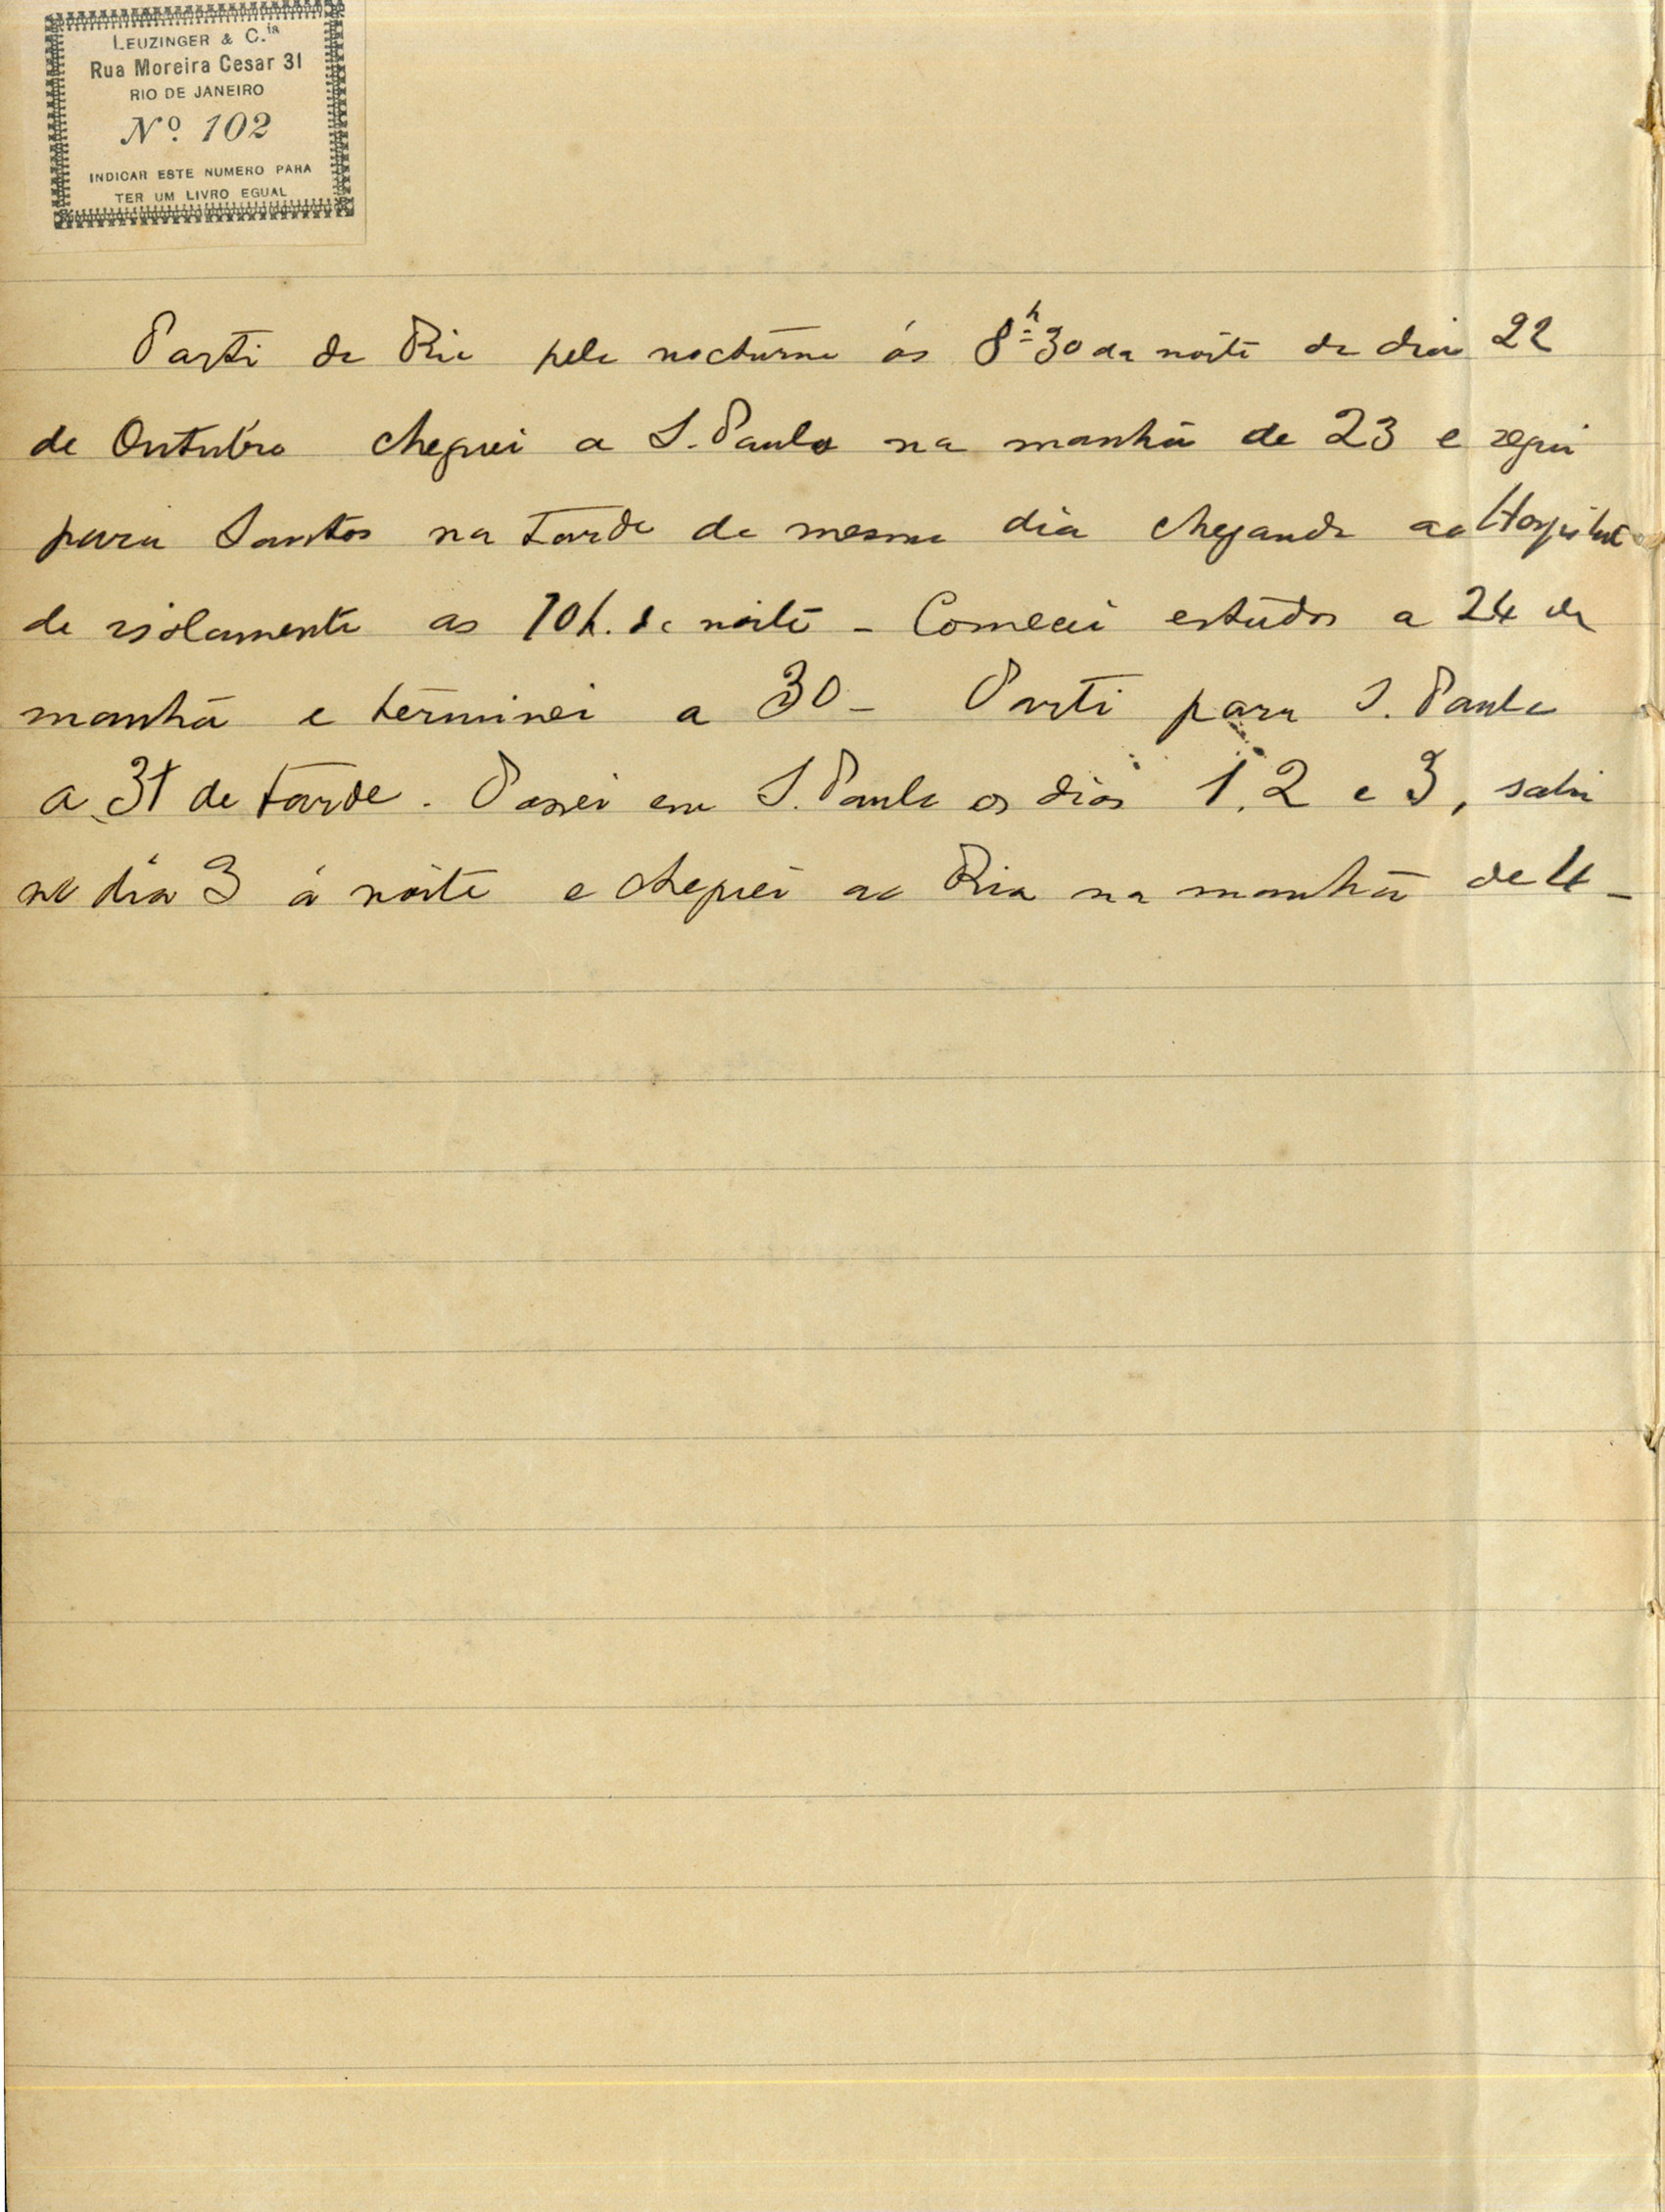 LEUZINGER & C.ia
Rua Moreira Cesar 31
RIO DE JANEIRO
Nº. 102
INDICAR ESTE NUMERO PARA
TER UM LIVRO EGUAL
Parti do Rio pelo nocturno ás 8h30 da noite do dia 22
de Outubro cheguei a S. Paulo na manhã de 23 e segui
para Santos na tarde do mesmo dia chegando ao Hospital
de isolamento as 10h. da noite – Comecei estudos a 24 de
manhã e terminei a 30 – Parti para S. Paulo
a 31 de tarde. Passei em S. Paulo os dias 1, 2 e 3, sahi
no dia 3 á noite e cheguei ao Rio na manhã de 4 –